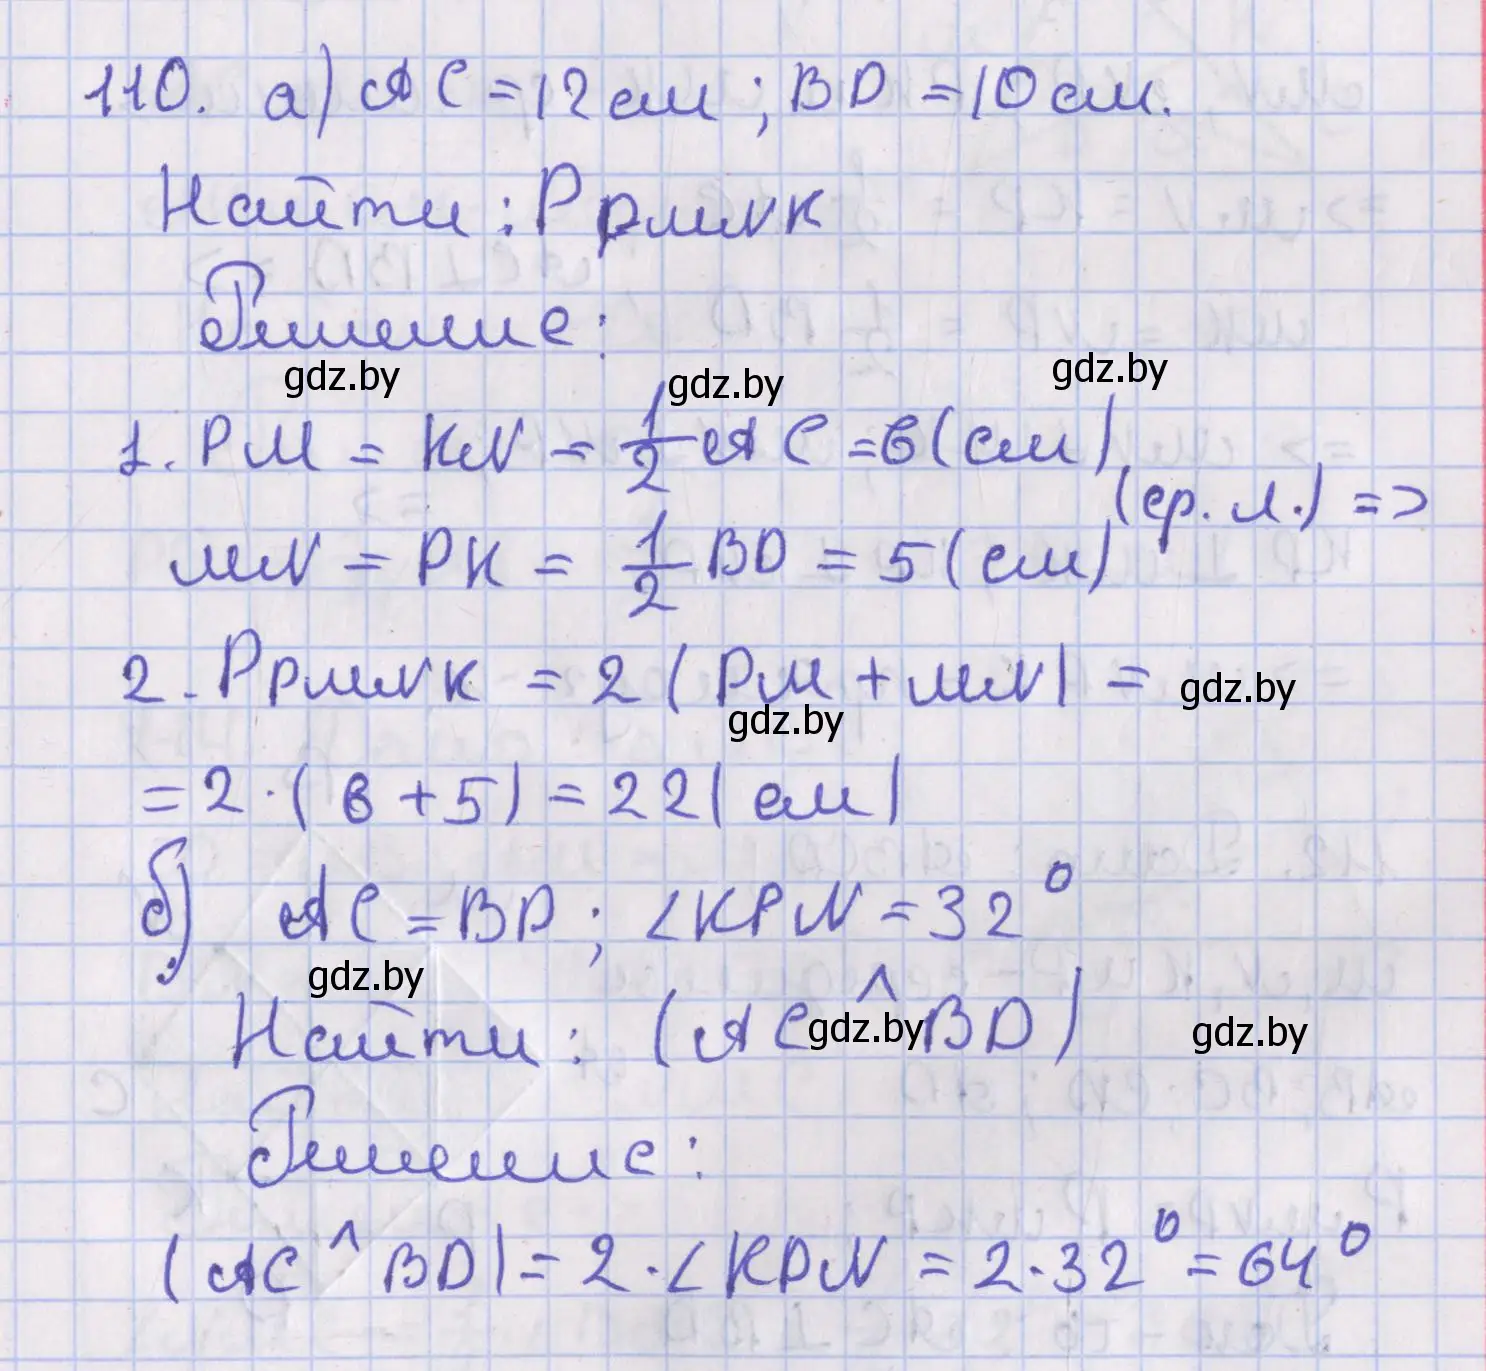 110. а) AC = 12 см ; BD = 10 см.
Найти : P PMNK
Решение:
gdz.by gdz.by gdz.by
1. PM = KN = 1/2 AC = 6 (см)
(ср. л.) =>
MN = PK = 1/2 BD = 5 (см)
2. P PMNK = 2 (PM + MN) = gdz.by
gdz.by
= 2 · (6 + 5) = 22 (см)
б) AC = BD ; ∠KPN = 32°
gdz.by
Найти : (AC ^ BD)
gdz.by gdz.by
Решение:
(AC ^ BD) = 2 · ∠KPN = 2 · 32° = 64°